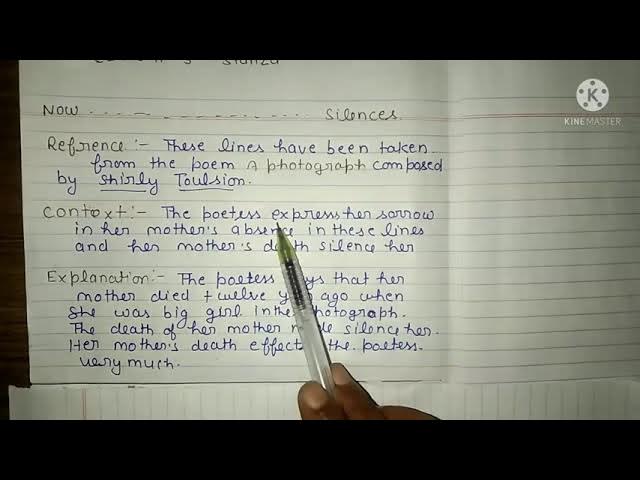 Now .................... silences.
KINEMASTER
Refrence :- These lines have been taken
from the poem A photograph composed
by Shirly Toulsion.
Context :- The poetess express her sorrow
in her mother's absence in these lines
and her mother's death silence her
Explanation :- The poetess that her
mother died twelve ago when
She was big girl in the photograph.
The death of her mother silence her.
Her mother's death effect the poetess
very much.